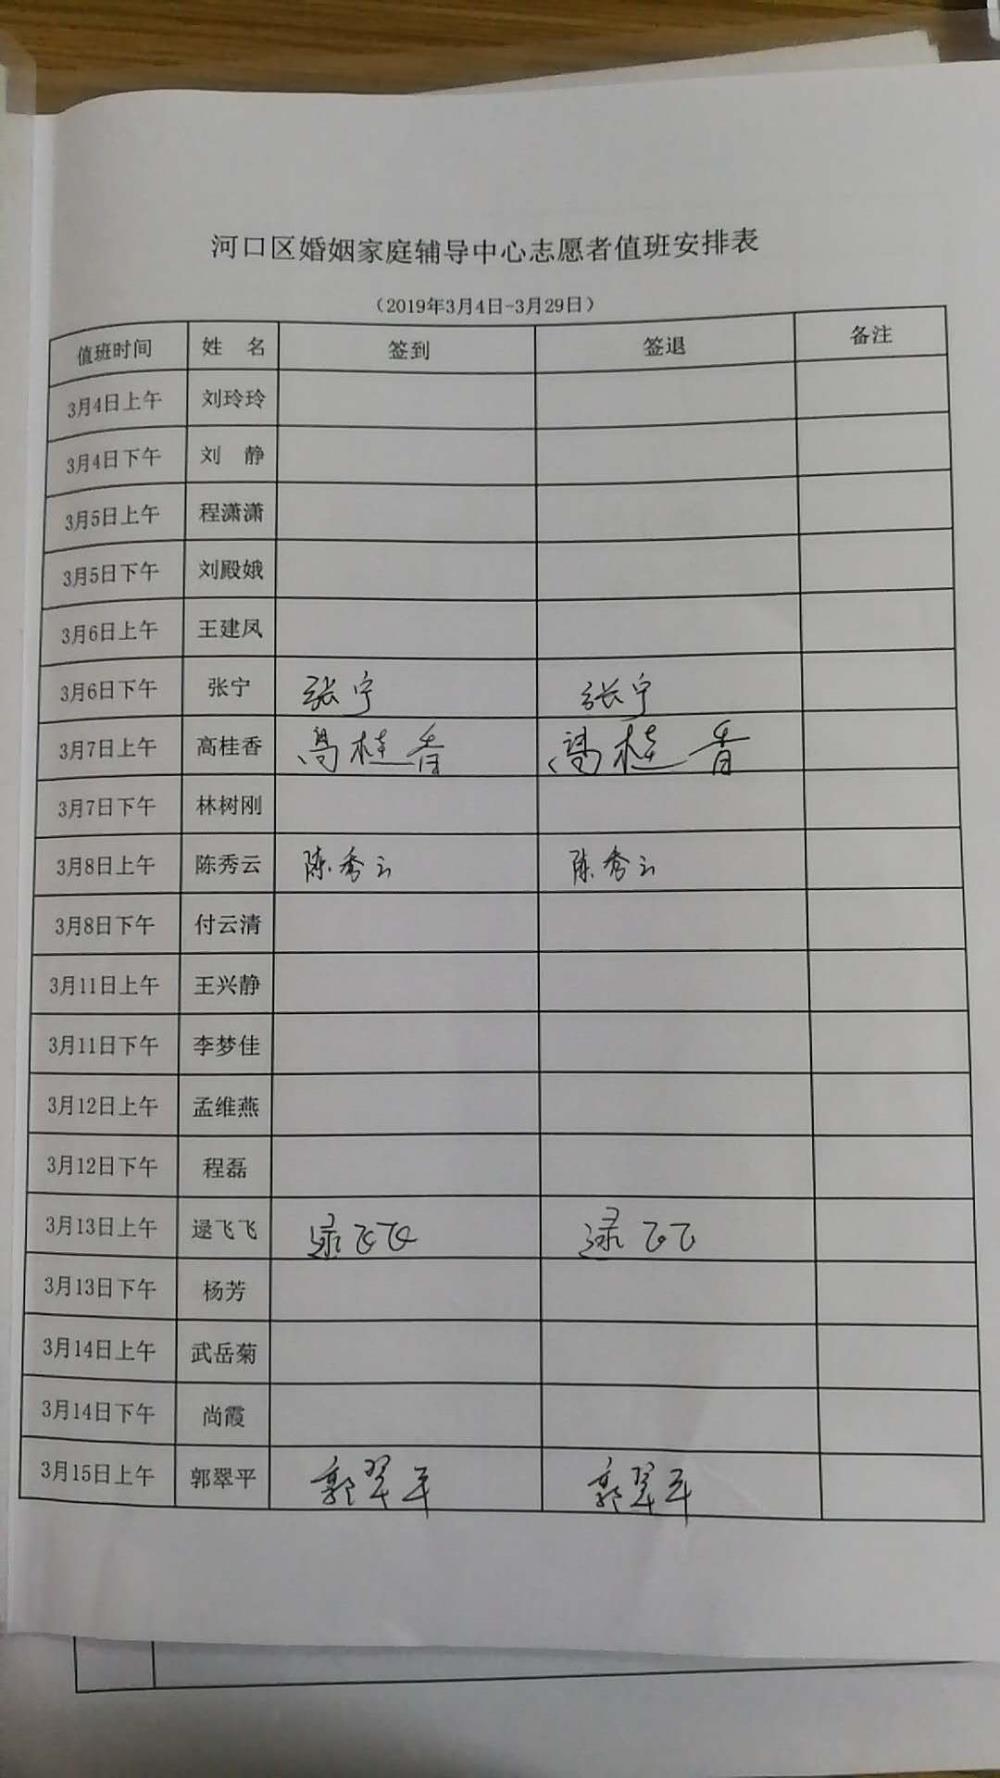 河口区婚姻家庭辅导中心志愿者值班安排表
（2019年3月4日-3月29日）
值班时间 姓 名 签到 签退 备注
3月4日上午 刘玲玲
3月4日下午 刘 静
3月5日上午 程潇潇
3月5日下午 刘殿娥
3月6日上午 王建凤
3月6日下午 张宁 张宁 张宁
3月7日上午 高桂香 高桂香 高桂香
3月7日下午 林树刚
3月8日上午 陈秀云 陈秀云 陈秀云
3月8日下午 付云清
3月11日上午 王兴静
3月11日下午 李梦佳
3月12日上午 孟维燕
3月12日下午 程磊
3月13日上午 逯飞飞 逯飞飞 逯飞飞
3月13日下午 杨芳
3月14日上午 武岳菊
3月14日下午 尚霞
3月15日上午 郭翠平 郭翠平 郭翠平